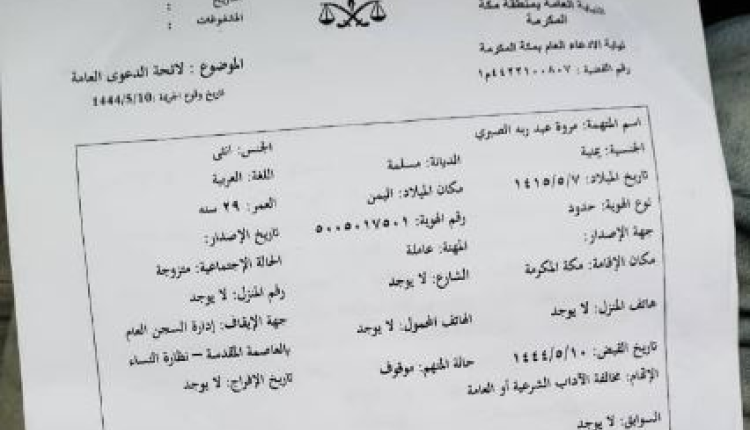 النيابة العامة بمنطقة مكة المكرمة
التاريخ :
المشفوعات :
نيابة الادعاء العام بمكة المكرمة
رقم القضية : ٤٤٢٢١٠٠٨٠٧م١
الموضوع : لائحة الدعوى العامة
تاريخ وقوع الجريمة :1444/5/10
اسم المتهمة: مروة عبد ربه الصبري
الجنس: انثى
الجنسية: يمنية
الديانة: مسلمة
اللغة: العربية
تاريخ الميلاد: ١٤١٥/٥/٧
مكان الميلاد: اليمن
العمر: ٢٩ سنه
نوع الهوية: حدود
رقم الهوية: ٥٠٠٥٠١٧٥٠١
تاريخ الإصدار:
جهة الإصدار:
المهنة: عاملة
الحالة الإجتماعية: متزوجة
مكان الإقامة: مكة المكرمة
الشارع: لا يوجد
رقم المنزل: لا يوجد
هاتف المنزل: لا يوجد
الهاتف المحمول: لا يوجد
جهة الإيقاف: إدارة السجن العام بالعاصمة المقدسة – نظارة النساء
تاريخ القبض: ١٤٤٤/٥/١٠
حالة المتهم: موقوف
تاريخ الإفراج: لا يوجد
الإتهام: مخالفة الآداب الشرعية أو العامة
السوابق: لا يوجد